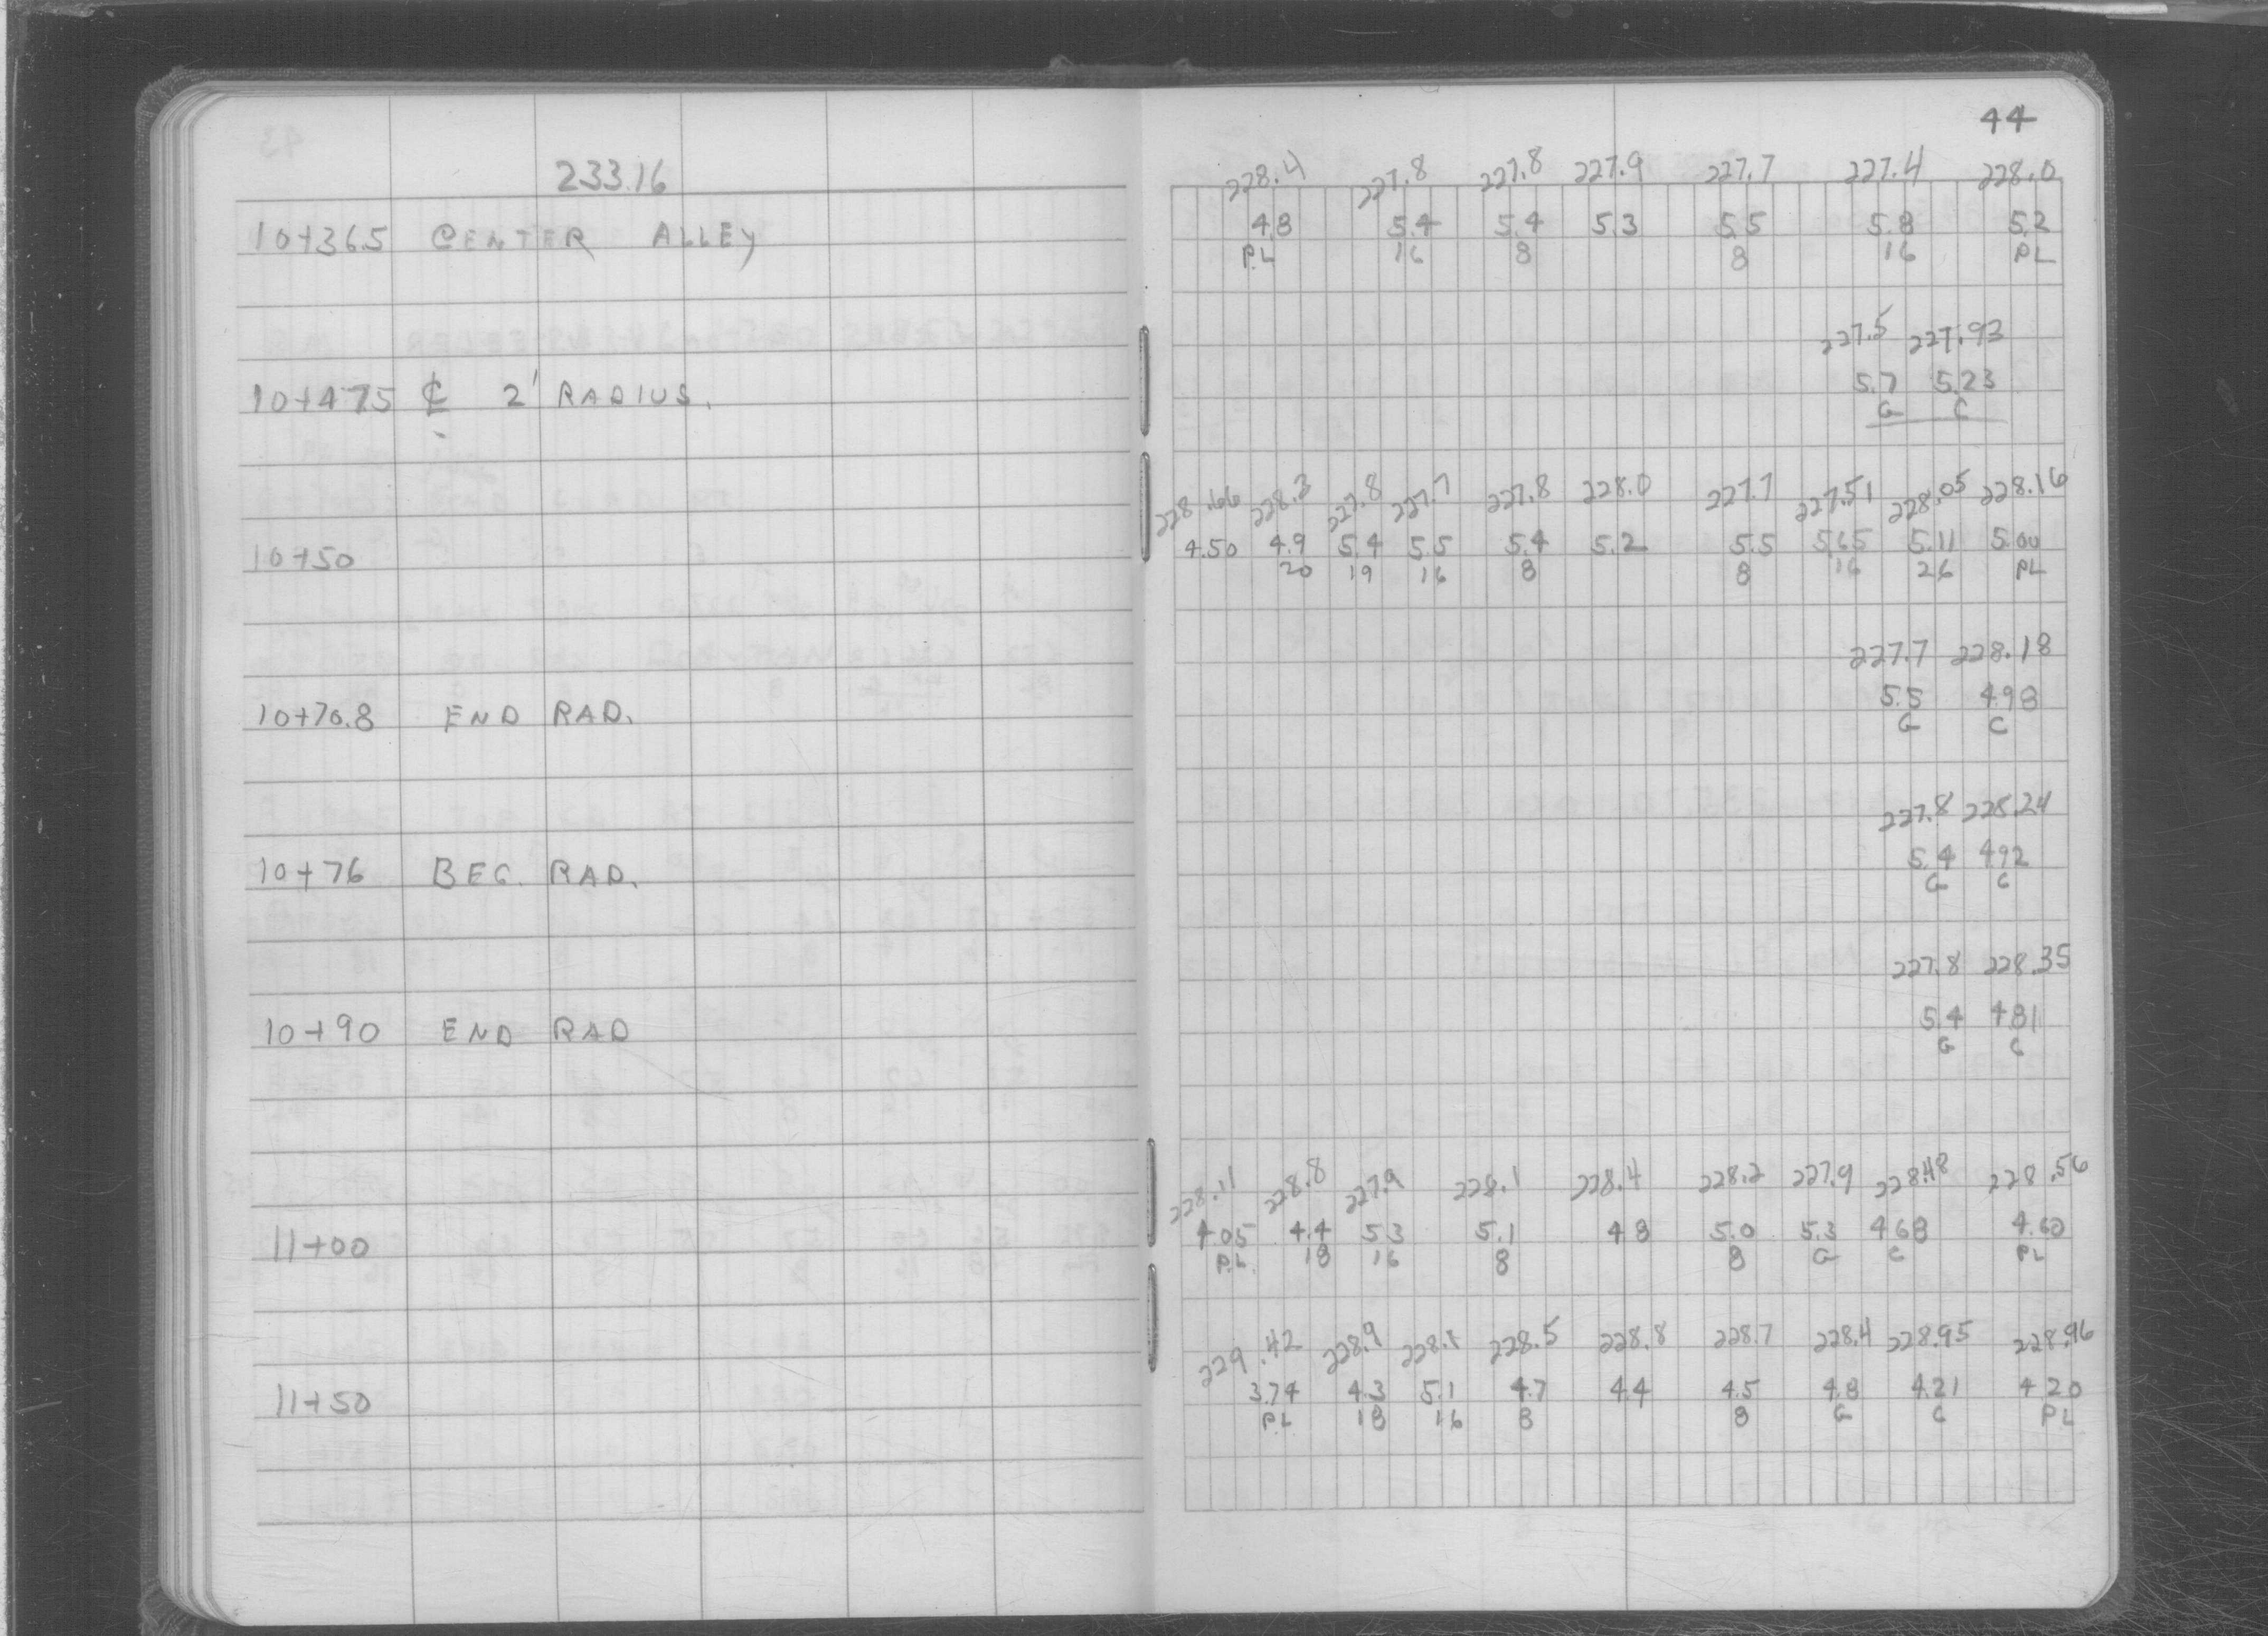 44
233.16
228.4 227.8 227.8 227.9 227.7 227.4 228.0
10+36.5 CENTER ALLEY 4.8 5.4 5.4 5.3 5.5 5.8 5.2
P.L 16 8 8 16 PL
227.5 227.93
10+47.5 ℄ 2' RADIUS. 5.7 5.23
G C
228.66 228.3 227.8 227.7 227.8 228.0 227.7 227.51 228.05 228.16
10+50 4.50 4.9 5.4 5.5 5.4 5.2 5.5 5.65 5.11 5.00
20 19 16 8 8 16 26 PL
227.7 228.18
10+70.8 END RAD. 5.5 4.98
G C
227.8 228.24
10+76 BEG. RAD. 5.4 4.92
G C
227.8 228.35
10+90 END RAD 5.4 4.81
G C
228.11 228.8 227.9 228.1 228.4 228.2 227.9 228.48 228.56
11+00 4.05 4.4 5.3 5.1 4.8 5.0 5.3 4.68 4.60
P.L. 18 16 8 8 G C PL
229.42 228.9 228.1 228.5 228.8 228.7 228.4 228.95 228.96
11+50 3.74 4.3 5.1 4.7 4.4 4.5 4.8 4.21 4.20
P.L 18 16 8 8 G C PL